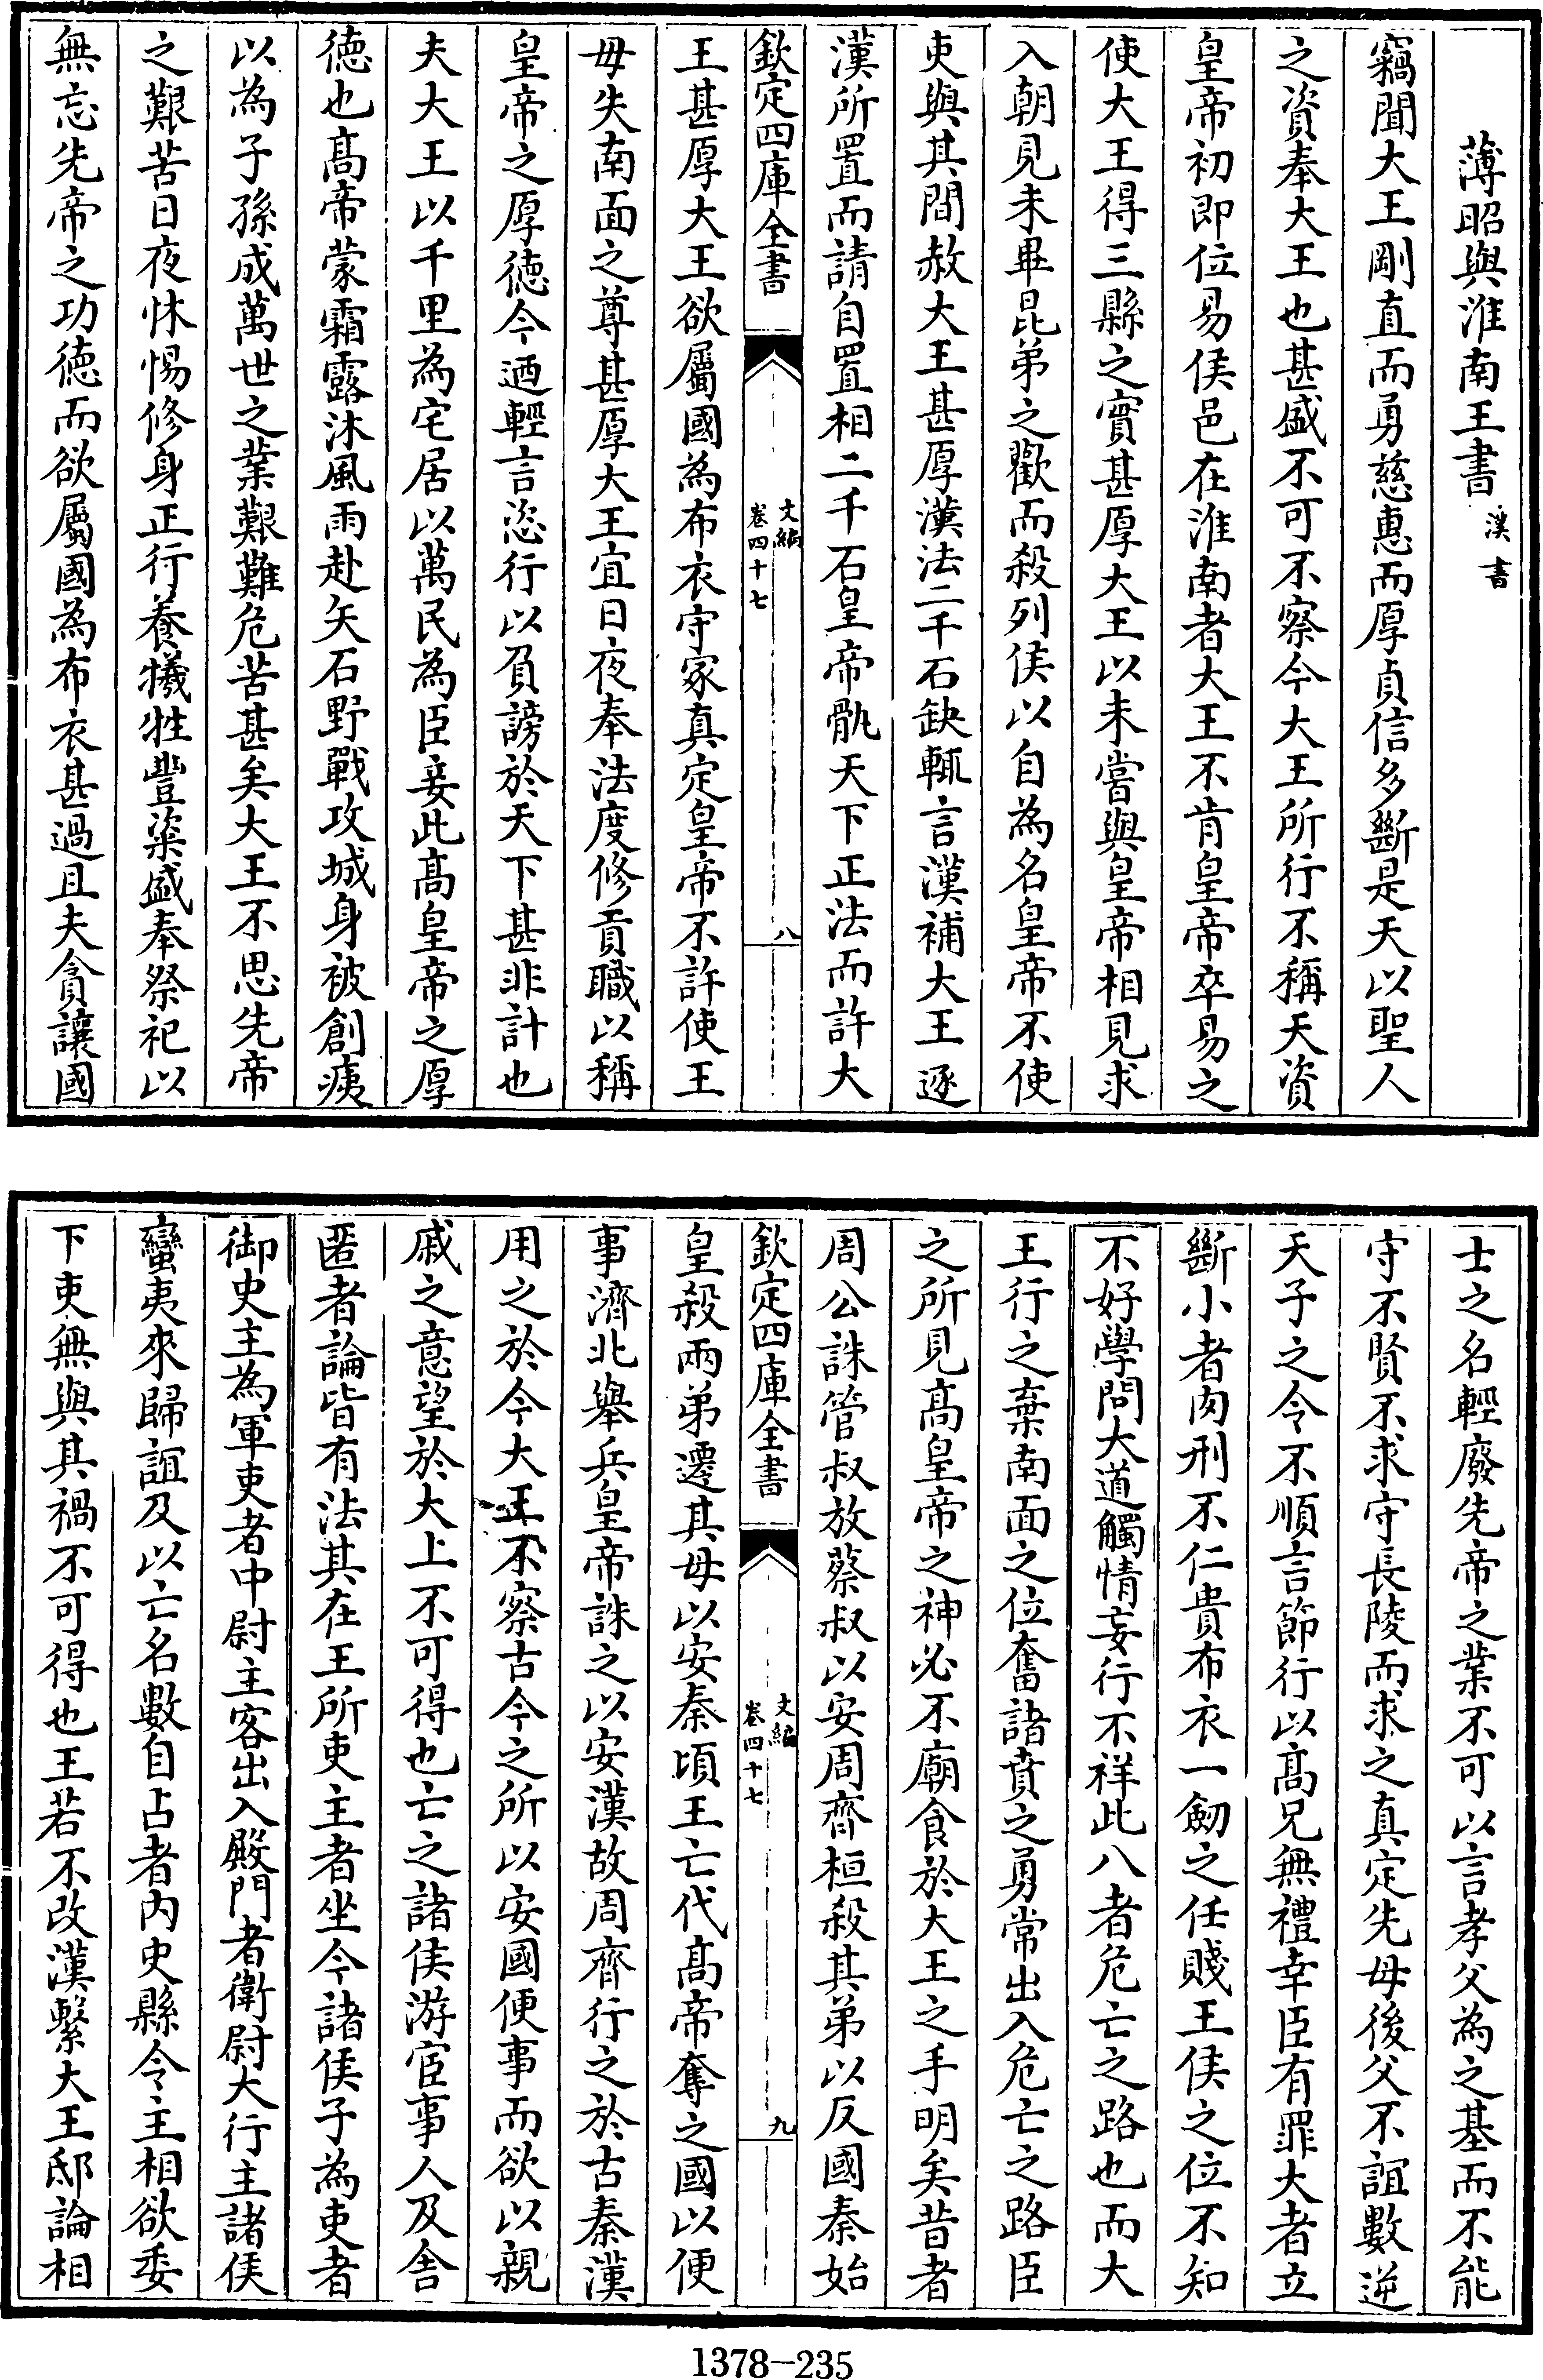 薄昭與淮南王書漢書
竊聞大王剛直而勇慈惠而厚貞信多斷是天以聖人
之資奉大王也甚盛不可不察今大王所行不稱天資
皇帝初即位易侯邑在淮南者大王不肯皇帝卒易之
使大王得三縣之實甚厚大王以未嘗與皇帝相見求
入朝見未畢昆弟之歡而殺列侯以自為名皇帝不使
吏與其間赦大王甚厚漢法二千石缺輒言漢補大王逐
漢所置而請自置相二千石皇帝骫天下正法而許大
欽定四庫全書
文編
卷四十七
八
王甚厚大王欲屬國為布衣守冢真定皇帝不許使王
毋失南面之尊甚厚大王宜日夜奉法度修貢職以稱
皇帝之厚徳今迺輕言恣行以負謗於天下甚非計也
夫大王以千里為宅居以萬民為臣妾此髙皇帝之厚
徳也髙帝蒙霜露沐風雨赴矢石野戰攻城身被創痍
以為子孫成萬世之業艱難危苦甚矣大王不思先帝
之艱苦日夜怵惕修身正行養犧牲豐粢盛奉祭祀以
無忘先帝之功徳而欲屬國為布衣甚過且夫貪讓國
士之名輕廢先帝之業不可以言孝父為之基而不能
守不賢不求守長陵而求之真定先母後父不誼數逆
天子之令不順言節行以髙兄無禮幸臣有罪大者立
斷小者肉刑不仁貴布衣一劒之任賤王侯之位不知
不好學問大道觸情妄行不祥此八者危亡之路也而大
王行之棄南面之位奮諸賁之勇常出入危亡之路臣
之所見髙皇帝之神必不廟食於大王之手明矣昔者
周公誅管叔放蔡叔以安周齊桓殺其弟以反國秦始
欽定四庫全書
文編
卷四十七
九
皇殺兩弟遷其母以安秦頃王亡代髙帝奪之國以便
事濟北舉兵皇帝誅之以安漢故周齊行之於古秦漢
用之於今大王不察古今之所以安國便事而欲以親
戚之意望於大上不可得也亡之諸侯游宦事人及舍
匿者論皆有法其在王所吏主者坐今諸侯子為吏者
御史主為軍吏者中尉主客出入殿門者衛尉大行主諸侯
蠻夷來歸誼及以亡名數自占者內史縣令主相欲委
下吏無與其禍不可得也王若不改漢繫大王邸論相
1378-235